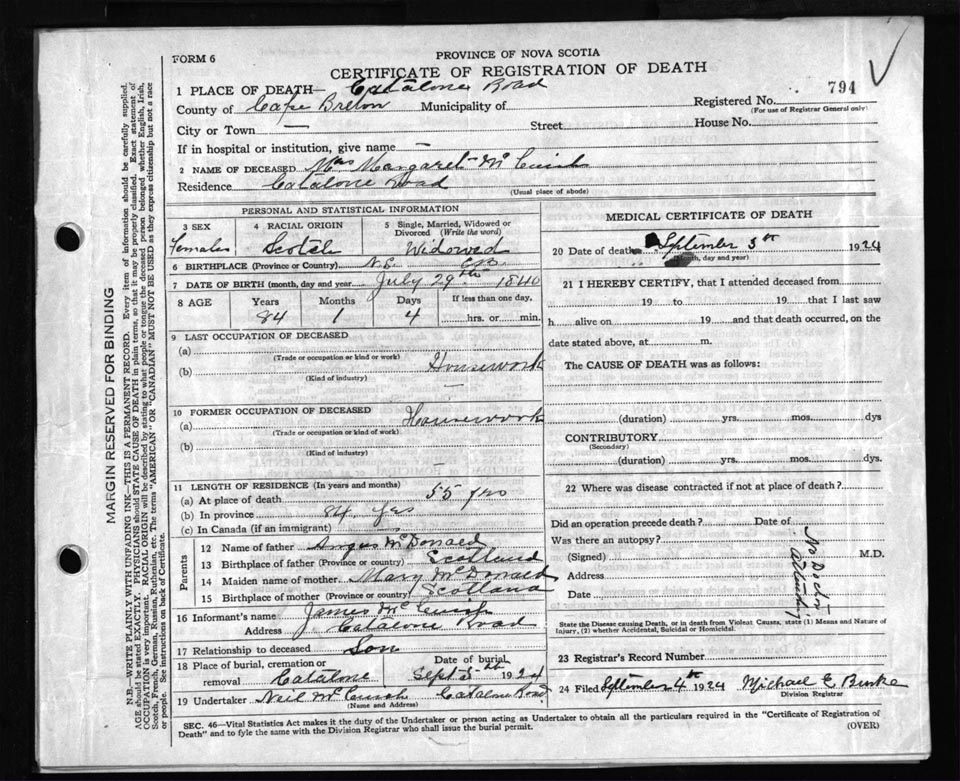 FORM 6
PROVINCE OF NOVA SCOTIA
CERTIFICATE OF REGISTRATION OF DEATH
1 PLACE OF DEATH— Catalone Road
794
County of Cape Breton Municipality of Registered No.
(For use of Registrar General only)
City or Town — Street House No.
If in hospital or institution, give name —
2 NAME OF DECEASED Mrs Margaret McCuish
Residence Catalone Road
(Usual place of abode)
PERSONAL AND STATISTICAL INFORMATION
3 SEX 4 RACIAL ORIGIN 5 Single, Married, Widowed or
Divorced (Write the word)
Females Scotch Widowed
6 BIRTHPLACE (Province or Country) N.S. C.B.
7 DATE OF BIRTH (month, day and year) July 29th 1840
8 AGE Years Months Days If less than one day,
84 1 4 hrs. or min.
9 LAST OCCUPATION OF DECEASED
(a) Housework
(Trade or occupation or kind or work)
(b) —
(Kind of industry)
10 FORMER OCCUPATION OF DECEASED
(a) Housework
(Trade or occupation or kind of work)
(b) —
(Kind of industry)
11 LENGTH OF RESIDENCE (In years and months)
(a) At place of death 55 yrs
(b) In province 84 yrs
(c) In Canada (if an immigrant) —
Parents
12 Name of father Angus McDonald
13 Birthplace of father (Province or country) Scotland
14 Maiden name of mother Mary McDonald
15 Birthplace of mother (Province or country) Scotland
16 Informant's name James McCuish
Address Catalone Road
17 Relationship to deceased Son
18 Place of burial, cremation or Date of burial
removal Catalone Sept 5th 1924
19 Undertaker Neil McCuish Catalone Road
(Name and Address)
MEDICAL CERTIFICATE OF DEATH
20 Date of death September 3th 1924
(Month, day and year)
21 I HEREBY CERTIFY, that I attended deceased from
19 to 19 that I last saw
h alive on 19 and that death occurred, on the
date stated above, at m.
The CAUSE OF DEATH was as follows:
(duration) yrs. mos. dys
CONTRIBUTORY
(Secondary)
(duration) yrs. mos. dys.
22 Where was disease contracted if not at place of death?
Did an operation precede death? Date of
Was there an autopsy?
(Signed) M.D.
Address
Date
No Doctor
Attending
State the Disease causing Death, or in death from Violent Causes, state (1) Means and Nature of
Injury, (2) whether Accidental, Suicidal or Homicidal.
23 Registrar's Record Number
24 Filed September 4th 1924 Michael E Burke
Division Registrar
SEC. 46—Vital Statistics Act makes it the duty of the Undertaker or person acting as Undertaker to obtain all the particulars required in the "Certificate of Registration of
Death" and to fyle the same with the Division Registrar who shall issue the burial permit. (OVER)
MARGIN RESERVED FOR BINDING
N.B.—WRITE PLAINLY WITH UNFADING INK—THIS IS A PERMANENT RECORD. Every item of information should be carefully supplied.
AGE should be stated EXACTLY. PHYSICIANS should STATE CAUSE OF DEATH in plain terms, so that it may be properly classified. Exact statement of
OCCUPATION is very important. RACIAL ORIGIN will be described by stating to what people or tongue the deceased person belonged whether English, Irish,
Scotch, French, German, Russian, Ruthenian, etc. The terms "AMERICAN" OR "CANADIAN" MUST NOT BE USED as they express citizenship but not a race
or people. See instructions on back of Certificate.